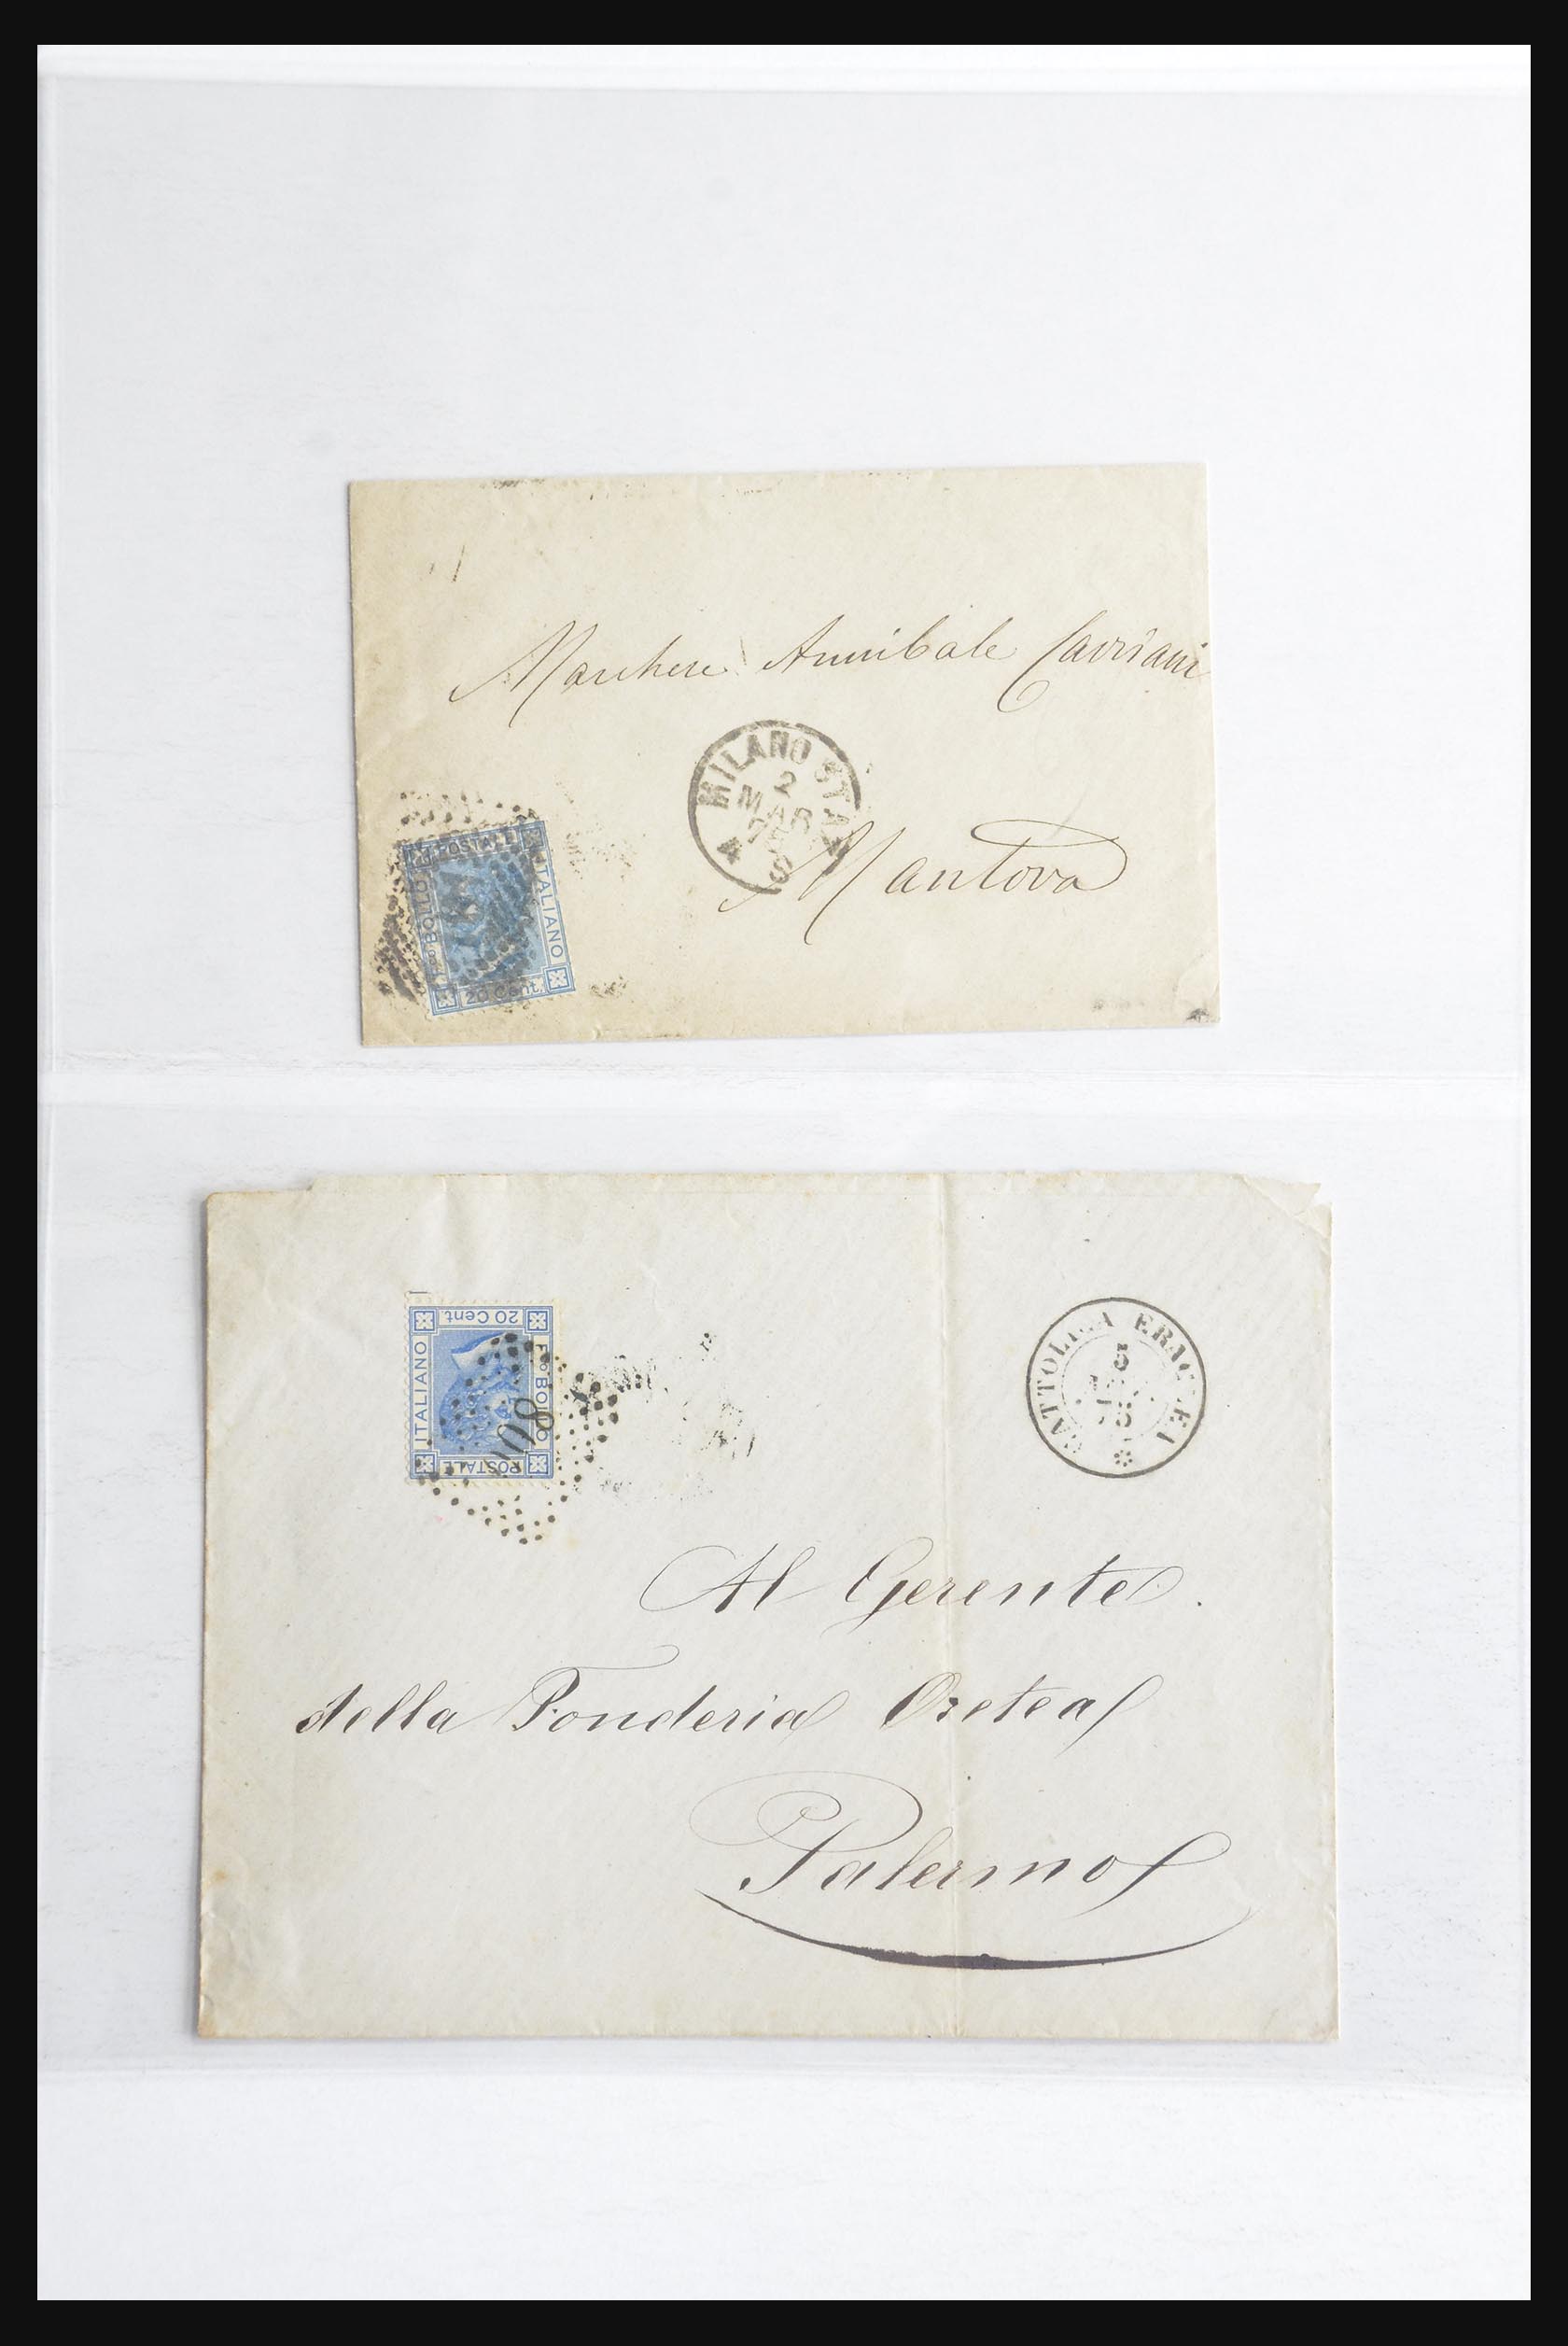 Marchese Annibale Cavriani
MILANO STAZ
2
MAR
Mantova
POSTALE
ITALIANO
Fco BOLLO
20 Cent.
20 Cent.
ITALIANO
Fco BOLLO
POSTALE
CATTOLICA ERACLEA
Al Gerente.
della Fonderia Oretea
Palermo